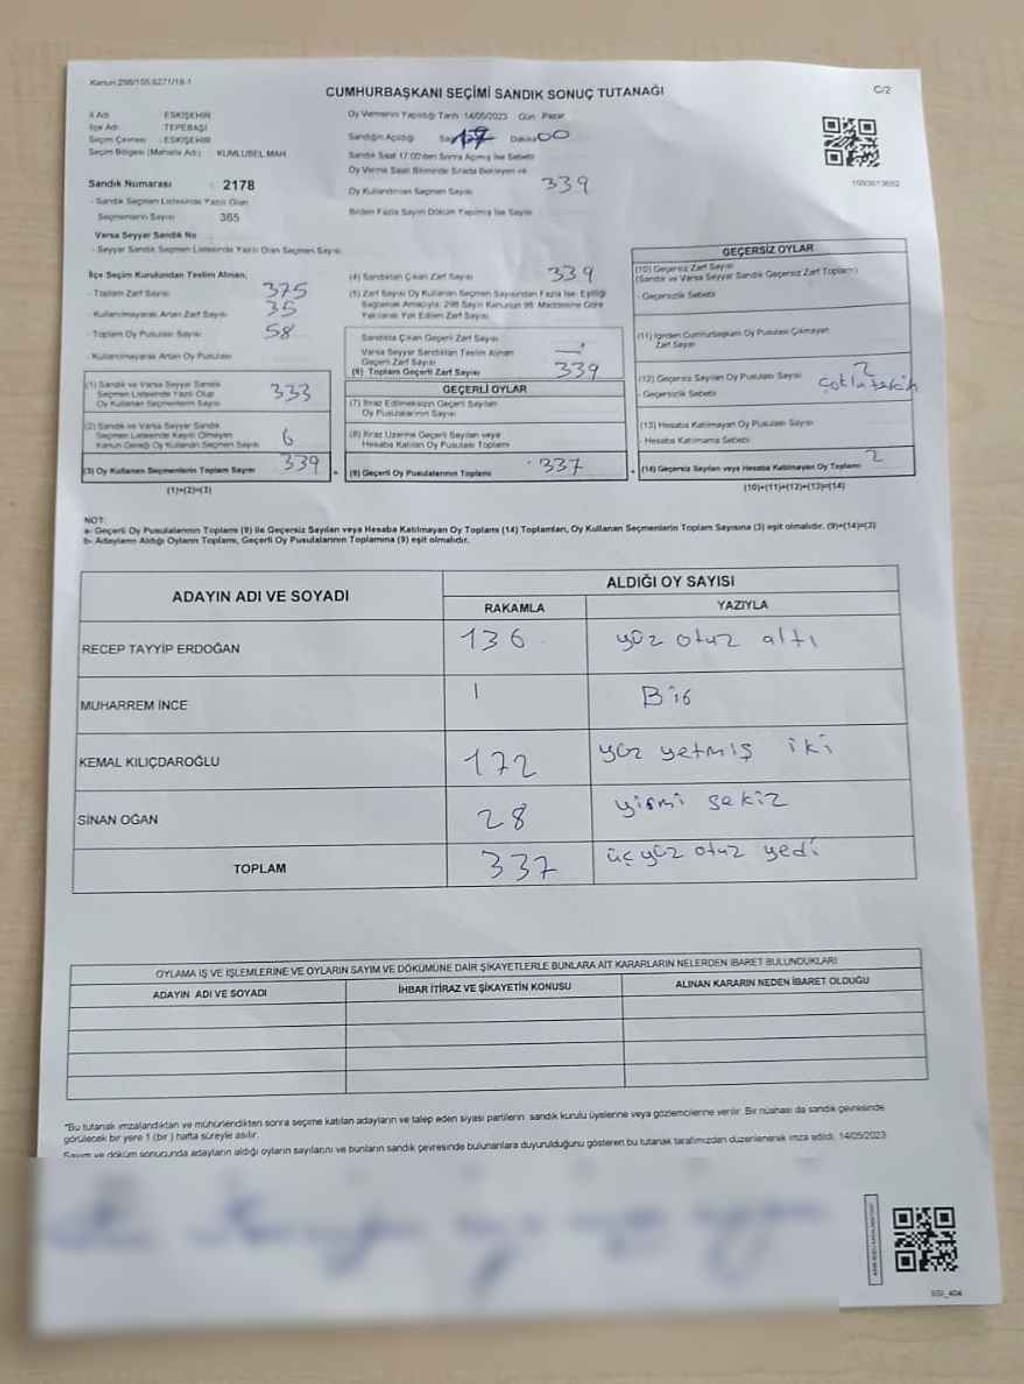 Kanun 298/105.6271/18-1
CUMHURBAŞKANI SEÇİMİ SANDIK SONUÇ TUTANAĞI
C/2
İl Adı : ESKİŞEHİR
İlçe Adı : TEPEBAŞI
Seçim Çevresi : ESKİŞEHİR
Seçim Bölgesi (Mahalle Adı) : KUMLUBEL MAH.
Oy Vermenin Yapıldığı Tarih: 14/05/2023 Gün: Pazar
Sandığın Açıldığı Saat 17 Dakika 00
Sandık Saat 17:00'den Sonra Açılmış İse Sebebi
Oy Verme Saati Bitiminde Sırada Bekleyen
Sandık Numarası : 2178
- Sandık Seçmen Listesinde Yazılı Olan
Seçmenlerin Sayısı 365
Oy Kullandırılan Seçmen Sayısı 339
Birden Fazla Sayım Döküm Yapılmış İse Sayısı
Varsa Seyyar Sandık No
- Seyyar Sandık Seçmen Listesinde Yazılı Olan Seçmen Sayısı
İlçe Seçim Kurulundan Teslim Alınan;
- Toplam Zarf Sayısı 375
- Kullanılmayarak Artan Zarf Sayısı 35
- Toplam Oy Pusulası Sayısı 58
- Kullanılmayarak Artan Oy Pusulası
(1) Sandık ve Varsa Seyyar Sandık
Seçmen Listesinde Yazılı Olup
Oy Kullanan Seçmenlerin Sayısı 333
(2) Sandık ve Varsa Seyyar Sandık
Seçmen Listesinde Kayıtlı Olmayan
Kanun Gereği Oy Kullanan Seçmen Sayısı 6
(3) Oy Kullanan Seçmenlerin Toplam Sayısı 339
(1)+(2)=(3)
(4) Sandıktan Çıkan Zarf Sayısı 339
(5) Zarf Sayısı Oy Kullanan Seçmen Sayısından Fazla İse, Eşitliği
Sağlamak Amacıyla, 298 Sayılı Kanunun 98. Maddesine Göre
Yakılarak Yok Edilen Zarf Sayısı
Sandıkta Çıkan Geçerli Zarf Sayısı
Varsa Seyyar Sandıktan Teslim Alınan
Geçerli Zarf Sayısı
(6) Toplam Geçerli Zarf Sayısı 339
GEÇERLİ OYLAR
(7) İtiraz Edilmeksizin Geçerli Sayılan
Oy Pusulalarının Sayısı
(8) İtiraz Üzerine Geçerli Sayılan veya
Hesaba Katılan Oy Pusulası Toplamı
(9) Geçerli Oy Pusulalarının Toplamı 337
GEÇERSİZ OYLAR
(10) Geçersiz Zarf Sayısı
(Sandık ve Varsa Seyyar Sandık Geçersiz Zarf Toplamı)
- Geçersizlik Sebebi
(11) İçinden Cumhurbaşkanı Oy Pusulası Çıkmayan
Zarf Sayısı
(12) Geçersiz Sayılan Oy Pusulası Sayısı 2
- Geçersizlik Sebebi çoklu tercih
(13) Hesaba Katılmayan Oy Pusulası Sayısı
- Hesaba Katılmama Sebebi
(14) Geçersiz Sayılan veya Hesaba Katılmayan Oy Toplamı 2
(10)+(11)+(12)+(13)=(14)
NOT:
a- Geçerli Oy Pusulalarının Toplamı (9) ile Geçersiz Sayılan veya Hesaba Katılmayan Oy Toplamı (14) Toplamları, Oy Kullanan Seçmenlerin Toplam Sayısına (3) eşit olmalıdır. (9)+(14)=(3)
b- Adayların Aldığı Oyların Toplamı, Geçerli Oy Pusulalarının Toplamına (9) eşit olmalıdır.
ADAYIN ADI VE SOYADI
ALDIĞI OY SAYISI
RAKAMLA YAZIYLA
RECEP TAYYİP ERDOĞAN 136 yüz otuz altı
MUHARREM İNCE 1 Bir
KEMAL KILIÇDAROĞLU 172 yüz yetmiş iki
SİNAN OĞAN 28 yirmi sekiz
TOPLAM 337 üç yüz otuz yedi
OYLAMA İŞ VE İŞLEMLERİNE VE OYLARIN SAYIM VE DÖKÜMÜNE DAİR ŞİKAYETLERLE BUNLARA AİT KARARLARIN NELERDEN İBARET BULUNDUKLARI
ADAYIN ADI VE SOYADI
İHBAR İTİRAZ VE ŞİKAYETİN KONUSU
ALINAN KARARIN NEDEN İBARET OLDUĞU
*Bu tutanak imzalandıktan ve mühürlendikten sonra seçime katılan adayların ve talep eden siyasi partilerin sandık kurulu üyelerine veya gözlemcilerine verilir. Bir nüshası da sandık çevresinde
görülecek bir yere 1 (bir) hafta süreyle asılır.
Sayım ve döküm sonucunda adayların aldığı oyların sayılarını ve bunların sandık çevresinde bulunanlara duyurulduğunu gösteren bu tutanak tarafımızdan düzenlenerek imza edildi. 14/05/2023